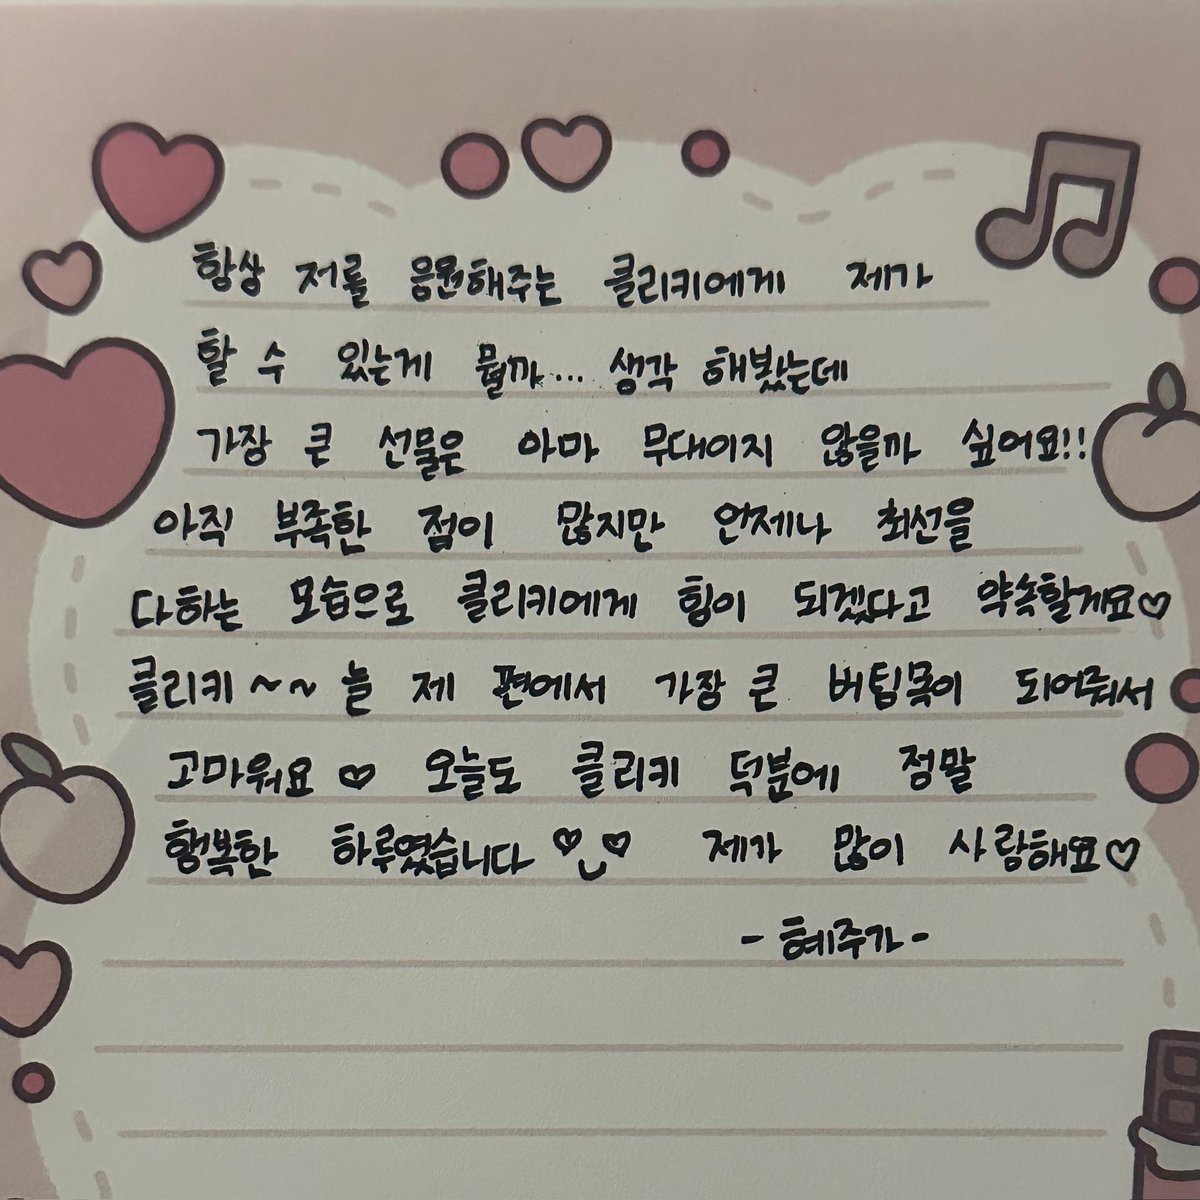 항상 저를 응원해주는 클리키에게 제가
할 수 있는게 뭘까... 생각 해봤는데
가장 큰 선물은 아마 무대이지 않을까 싶어요!!
아직 부족한 점이 많지만 언제나 최선을
다하는 모습으로 클리키에게 힘이 되겠다고 약속할게요♡
클리키~~ 늘 제 편에서 가장 큰 버팀목이 되어줘서
고마워요♡ 오늘도 클리키 덕분에 정말
행복한 하루였습니다 ♡◡♡ 제가 많이 사랑해요♡
- 혜주가 -